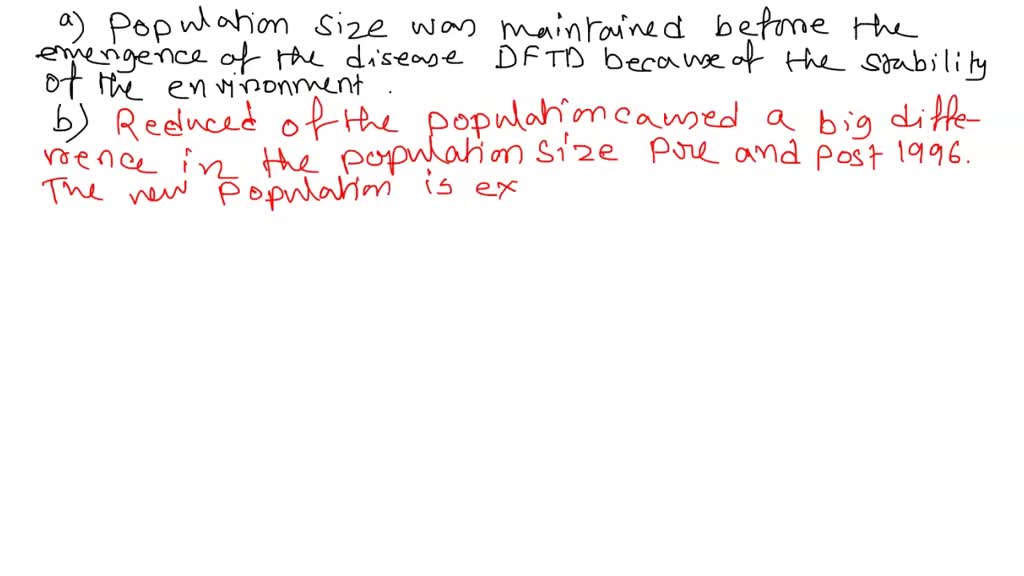 a) Population size was maintained before the
emergence of the disease DFTD because of the stability
of the environment.
b) Reduced of the population caused a big diffe-
rence in the population size pre and post 1996.
The new population is ex